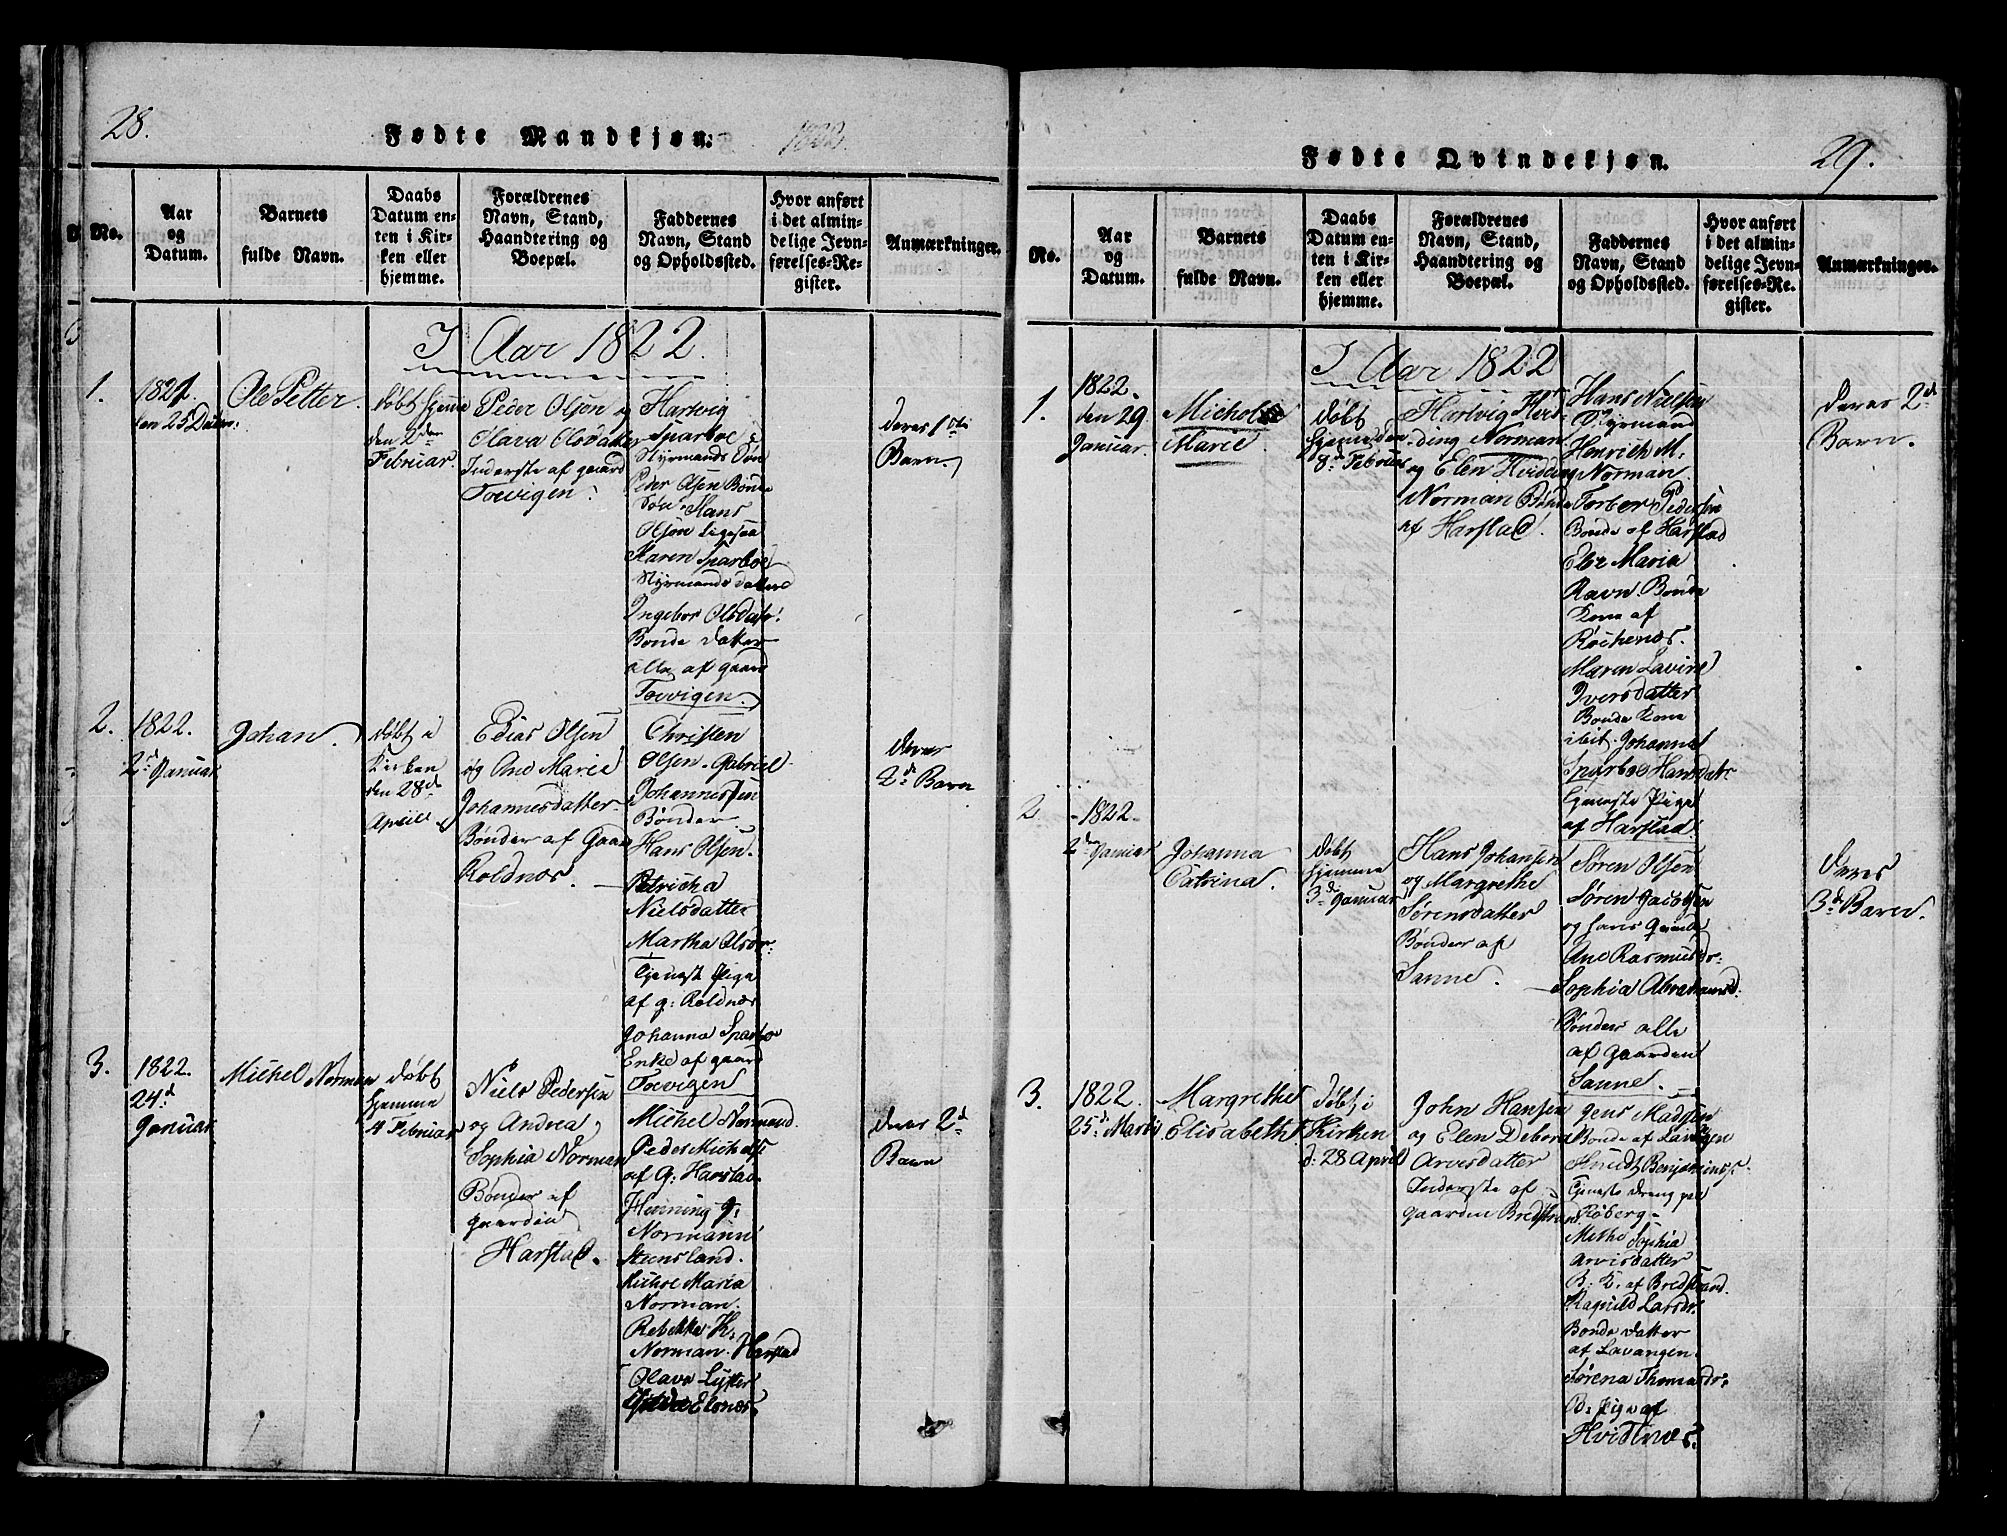 28.
Fødte Mandkjøn.
1822.
No.
Aar
og
Datum.
Barnets
fulde Navn.
Daabs
Datum en-
ten i Kir-
ken eller
hjemme.
Forældrenes
Navn, Stand,
Haandtering og
Boepæl.
Faddernes
Navn, Stand
og Opholdssted.
Hvor anført
i det almin-
delige Jevn-
førelses-Re-
gister.
Anmærkninger.
I Aar 1822.
1.
1821.
den 25 Decem:
Ole Petter.
døbt hjemme
den 2den
Februar.
Peder Olsen og
Olava Olsdatter
Inderste af gaard
Toevigen.
Hartvig
Sparboe
Styrmands Søn
Peder Olsen Bonde
Søn. Hans
Olsen Ligesaa
Karen Sparboe
Styrmands datter
Ingebor Olsdatr:
Bonde datter
alle af gaard
Toevigen.
deres 1ste
Barn.
2.
1822.
2d Januar
Johan.
døbt i
Kirken
den 28d
April
Edias Olsen
og Ane Marie
Johannesdatter
Bønder af Gaard
Roldnes.
Christen
Olsen. Gabriel
Johannessen
Bønder
Hans Olsen.
Petricha
Nielsdatter
Martha Olsdr:
Tjeneste Pige
af g: Roldnes
Johanna Sparboe
Enke af gaard
Toevigen
deres
2d Barn
3.
1822.
24d
Januar
Michel Norman
døbt
hjemme
4 Februar
Niels Pedersen
og Andrea
Sophia Norman
Bønder af
gaarden
Harstad.
Michel Normand.
Peder Michels:
af G: Harstad.
Henning J:
Normann
Steensland.
Michol Maria
Norman.
Rebekka K:
Norman. Harstad
Olava Lytter
Elgsnes.
deres 2d
Barn
29.
Fødte Qvindekjøn.
No.
Aar
og
Datum.
Barnets
fulde Navn.
Daabs
Datum en-
ten i Kir-
ken eller
hjemme.
Forældrenes
Navn, Stand,
Haandtering og
Boepæl.
Faddernes
Navn, Stand
og Opholdssted.
Hvor anført
i det almin-
delige Jevn-
førelses-Re-
gister.
Anmærkninger.
I Aar 1822
1.
1822.
den 29
Januar.
Michol
Marie.
døbt
hjemme den
8d Februar
Hartvig Hvid-
ding Norman
og Elen Hvidding
Norman Bønder
af Harstad.
Hans Nielsen
Styrmand
Henrich M.
Norman
Torber Pedersen
Bonde af Harstad
Else Maria
Ravn. Bonde
Kone af
Rochenes.
Maren Lavine
Iversdatter
Bonde Kone
ibit. Johanna
Sparboe Hansdatr
tjeneste Pige
af Harstad.
deres 2d
Barn.
2
1822.
2den Januar
Johanna
Catrina.
døbt
hjemme
3d Januar
Hans Johansen
og Margrethe
Sørensdatter
Bønder af
Sanne.
Søren Olsen
Søren Jacobsen
og hans Qvinde
Ane Rasmusdr:
Sophia Abrahamsd:
Bønder alle
af gaarden
Sanne.
deres
3d Barn.
3.
1822.
25d Marti
Margrethe
Elisabeth
døbt i
Kirken
d: 28 April
John Hansen
og Elen Debora
Arvesdatter
Inderste af
gaarden Bredstrand.
Jens Madsen
Bonde af Lavangen
Knudt Benjaminss:
Tjeneste dreng paa
Røberg
Methe Sophia
Arvisdatter
B: K. af Bredstrand.
Ragnild Larsdr:
Bonde datter
af Lavangen.
Sørena Thomasdr:
B: Pige af
Hvidtnes.